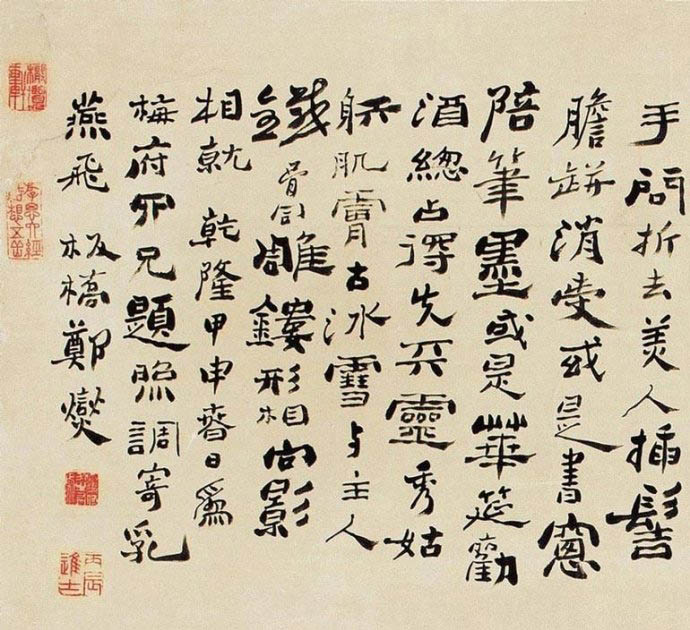 手折去美人插髻
膽缾消受或是書窓
陪筆墨或是華筵勸
酒總占得先天靈秀姑
射肌膚古冰雪与主人
鐵骨同雕鏤形相向影
相就 乾隆甲申春日為
梅府四兄題照調寄乳
燕飛 板橋鄭燮
丙辰進士